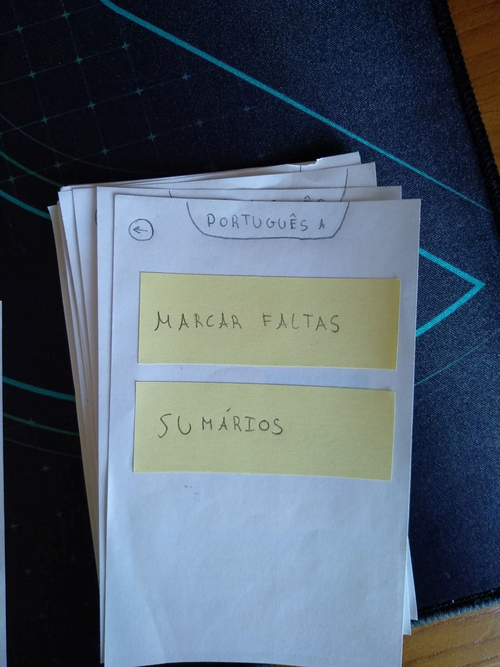 PORTUGUÊS A
MARCAR FALTAS
SUMÁRIOS